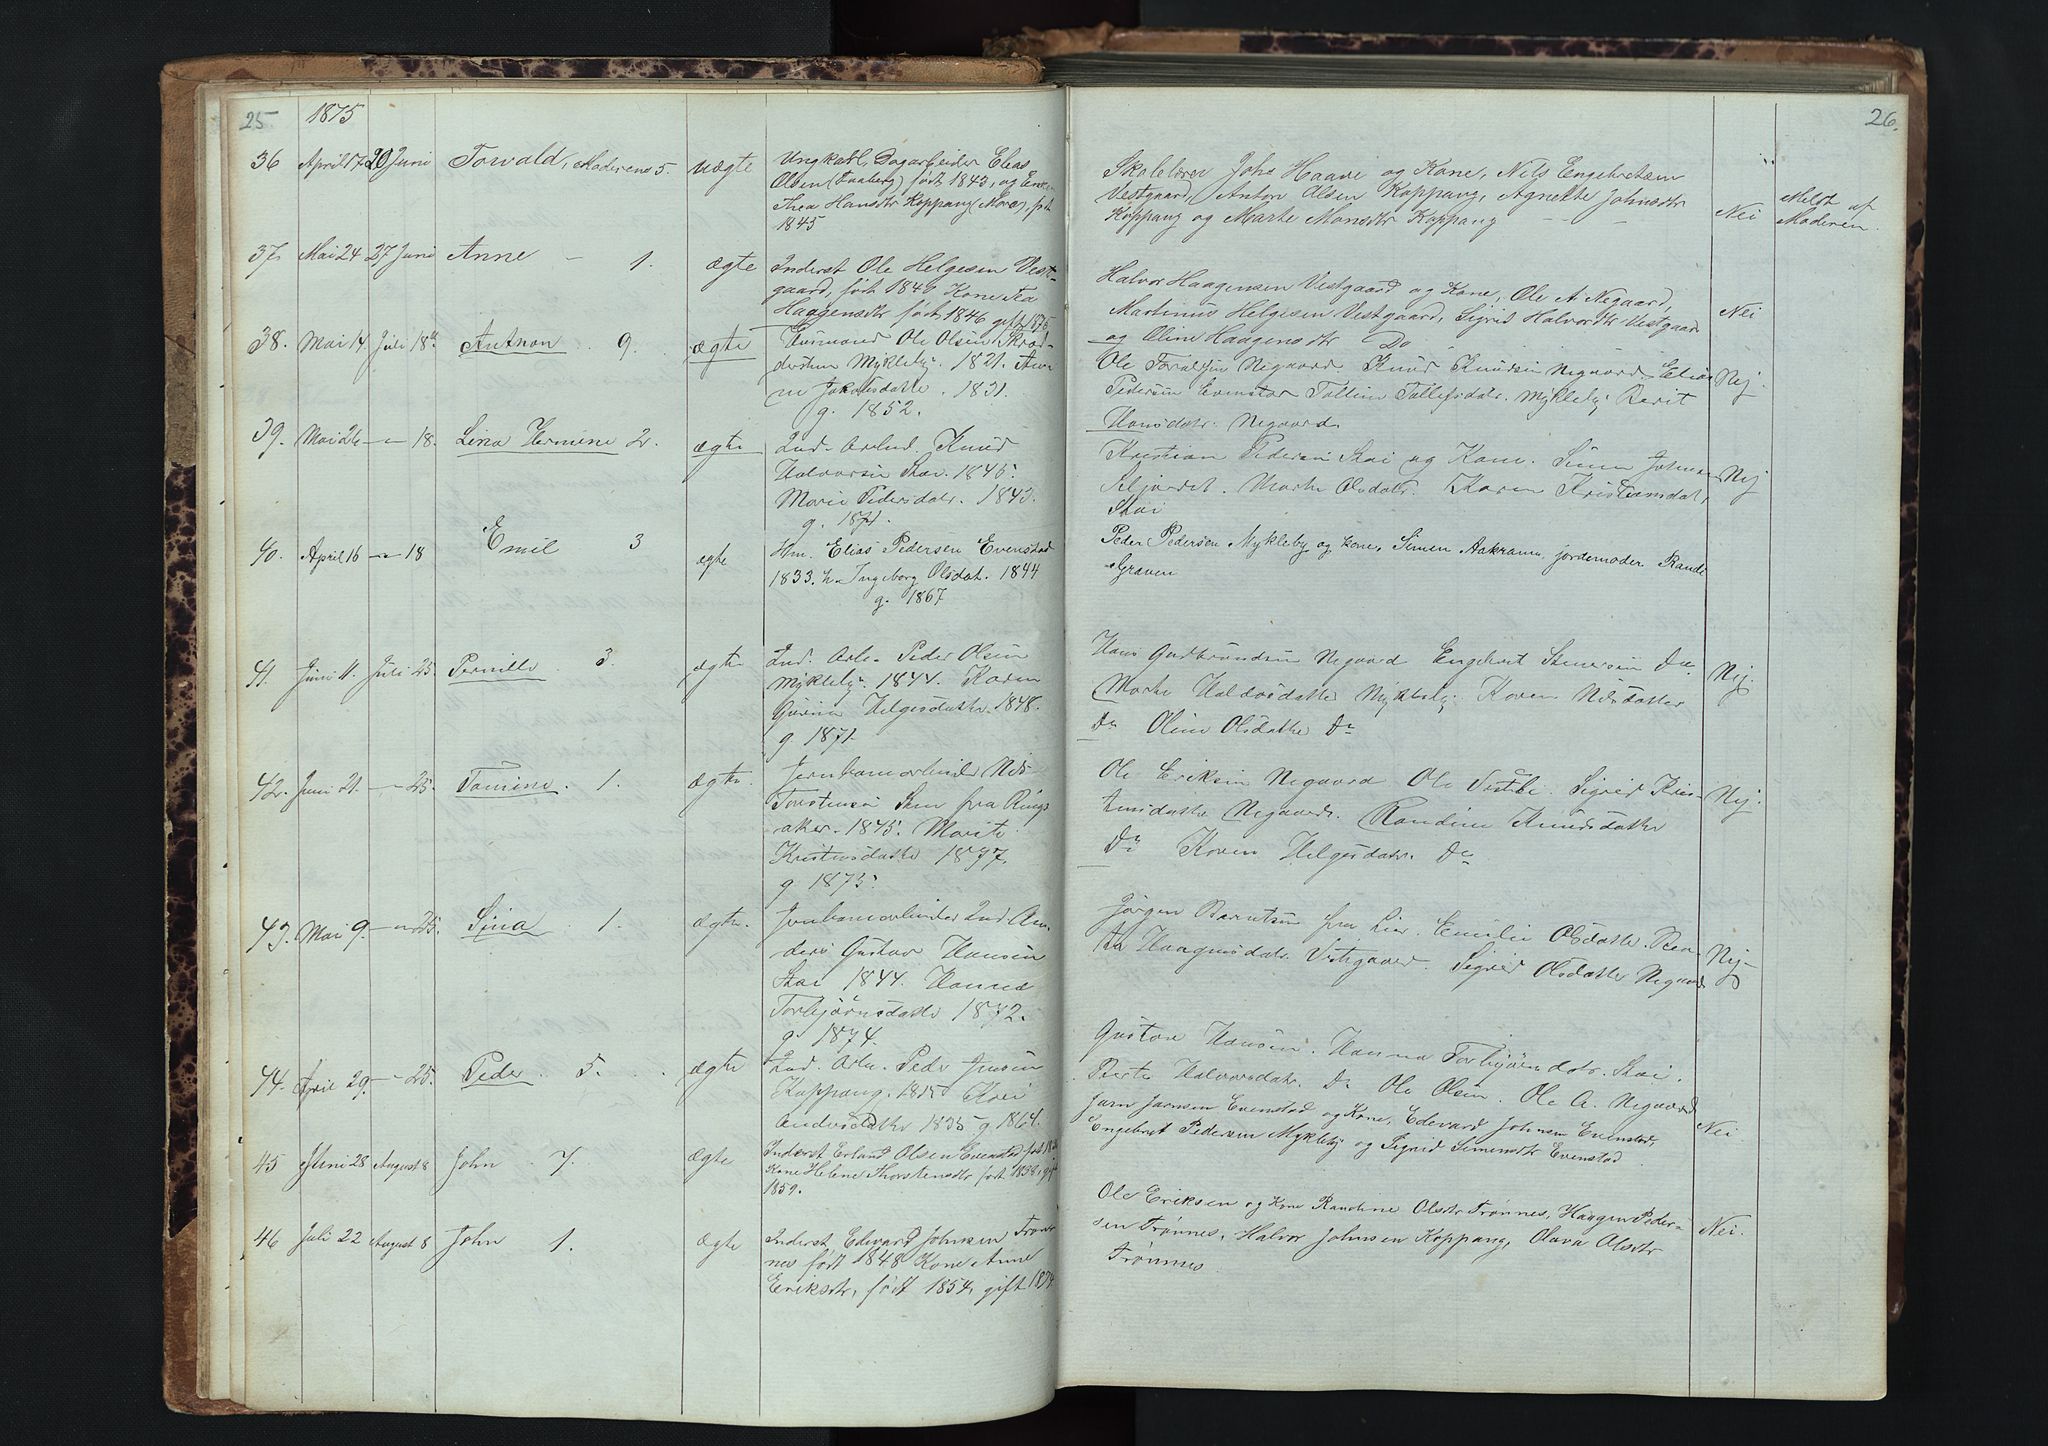 25.
1875
36 April 17 20 Juni Torvald, Moderens 5. uægte
Ungkarl, Dagarbeider Elias
Olsen (Faaberg) født 1843, og Enke
Thea Hansdtr Koppang (More), født
1845
37. Mai 24 27 Juni Anne – 1. ægte
Inderst Ole Helgesen Vest-
gaard, født 1840 Kone Eva
Haagensdtr født 1846 gift 1875
38. Mai 14 Juli 18de Anthon . 9. ægte
Huusmand Ole Olsen
Mykleby. 1821.
Jakobsdatter . 1831.
g. 1852.
39. Mai 26 – " – 18. Lina Hermine 2. ægte
Ind. Arbid. Knud
Halvorsen Stai. 1845.
Marie Pedersdatr. 1843.
g. 1871.
40. April 16 – " – 18 Emil 3 ægte
Hm. Elias Pedersen Evenstad
1833. h. Ingeborg Olsdat. 1844
g. 1867
41. Juni 11. Juli 25. Pernille 3. ægte
Ind. Arb. Peder Olsen
Mykleby. 1844. Karen
Gurine Helgesdatter 1848.
g. 1871.
42. Juni 21. – " – 25. Tomine . 1. ægte.
Jernbanearbeider Nils
Torstensen fra Rings-
aker. 1845. Marit
Kristensdatter
g. 1875.
43. Mai 9. – " – 25. Sina . 1. ægte.
Jernbanearbeider Ind. An-
ders Gustav Hansen
Stai 1844. Hanna
Torbjørnsdattr
g. 1874.
44. April 29. – " – 25. Peder . 5. ægte
Ind. Arb. Peder Jensen
Koppang. Kari
Andersdatter 1835 g. 1864.
45 Juni 28 August 8 John 7. ægte
Inderst Erland Olsen Evenstad født
Kone Helene Thorstensdtr født 1838, gift
1859.
46 Juli 22 August 8 John 1. ægte
Inderst Edevard Johnsen Trøn-
nes født 1848 Kone Anne
Eriksdtr, født 1854, gift 1874
26.
Skolelærer Johs Haave og Kone, Nils Engebretsen
Vestgaard, Anton Olsen Koppang, Agnethe Johnsdtr
Koppang og Marte Monsdtr Koppang Nei Meldt af
Moderen.
Halvor Haagensen Vestgaard og Kone, Ole A Negaard,
Martinus Helgesen Vestgaard, Sigrid Halvordtr Vestgaard Nei
og Oline Haagensdtr Do
Ole Negaard. Knud Knudsen Negaard. Elias Nej.
Pedersen Evenstad Tolline Tollefsdatr. Mykleby Berit
Hansdatr. Negaard.
Kristian Pedersen Stai og Kone. Simen Johnsen Nej
Marte Olsdatr. Karen Kristiansdat.
Stai
Peder Pedersen Mykleby og kone, Simen Aakrann, jordemoder Randi
Graven
Hans Gudbrandsen Negaard Engebret Stenersen Do Nej.
Marte Haldorsdatter Mykleby, Karen Nilsdatter
Do Oline Olsdatter Do
Ole Eriksen Negaard Ole Sigrid Kris- Nej.
tensdatter Negaard. Randine Knudsdatter
Do Karen Helgesdatr. Do
Jørgen Berntsen fra Lier. Emilie Olsdatter.
Haagensdatr. Vestgaard. Sigrid Olsdatter Negaard Nej.
Gustav Hansen. Hanna Torbjørnsdatr. Stai.
Berte Halvorsdatr. Do Ole Olsen. Ole A. Negaard
Jørn Jørnsen Evenstad og Kone, Edevard Johnsen Evenstad, Nei.
Engebret Pedersen Mykleby og Sigrid Simensdtr Evenstad
Ole Eriksen og Kone Randine Olsdtr Trønnes, Haagen Peder-
sen Trønnes, Halvor Johnsen Koppang, Olava Olsdtr Nei.
Trønnes